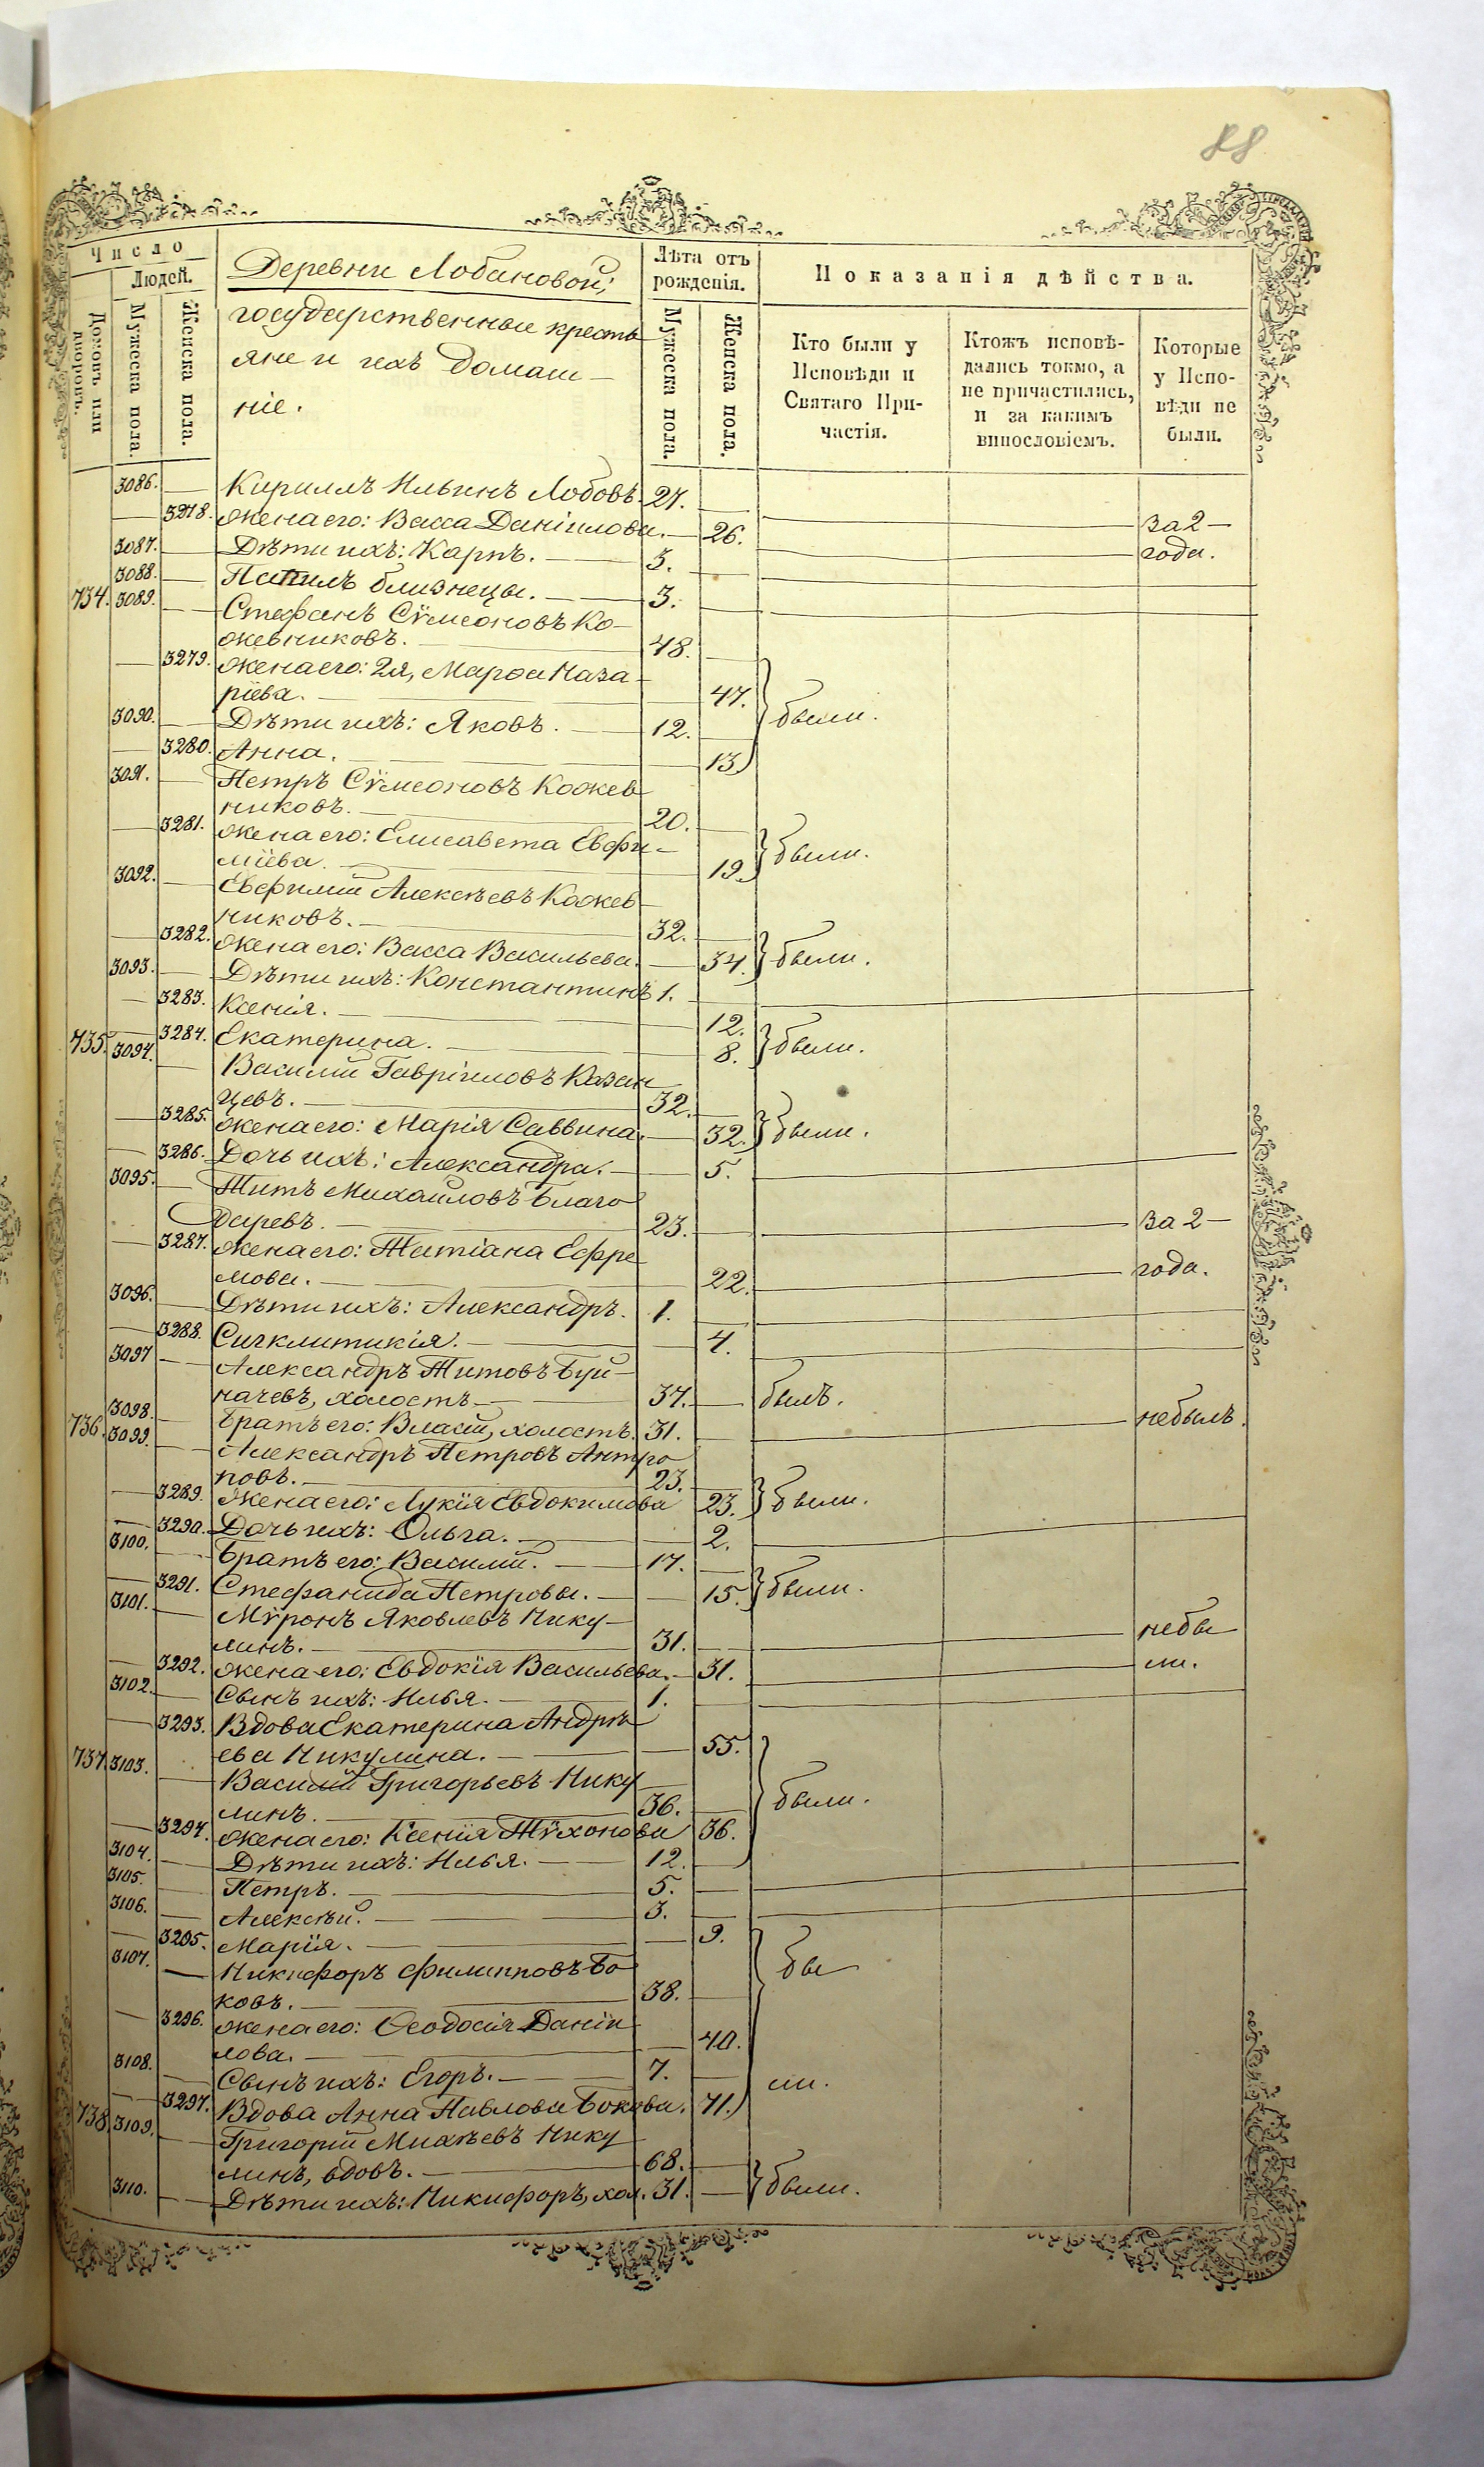 88
Число
Людей.
Домовъ или дворовъ.
Мужеска пола.
Женска пола.
Деревни Лобановой;
государственные кресть
яне и ихъ домаш-
ніе.
Лѣта отъ рожденія.
Мужеска пола.
Женска пола.
Показанія дѣйства.
Кто были у Исповѣди и Святаго Причастія.
Ктожъ исповѣ-
дались токмо, а
не причастились,
и за какимъ
винословіемъ.
Которые
у Испо-
вѣди не
были.
3086. Кириллъ Ильинъ Лобовъ. 27.
3278. Жена его: Васса Даніилова. 26. за 2
3087. Дѣти ихъ: Карпъ. 3. года.
3088. близнецы. 3.
734. 3089. Стефанъ Сѵмеоновъ Ко-
жевниковъ. 48.
3279. Жена его: 2я, Марѳа Наза-
ріева. 47.
3090. Дѣти ихъ: Яковъ. 12. были.
3280. Анна. 13.
3091. Петръ Сѵмеоновъ Кожев
никовъ. 20.
3281. Жена его: Елисавета Евфи-
міева. 19. были.
3092. Евфимій Алексѣевъ Кожев
никовъ. 32.
3282. Жена его: Васса Васильева. 34. были.
3093. Дѣти ихъ: Константинъ 1.
3283. Ксенія. 12.
3284. Екатерина. 8. были.
735. 3094. Василій Гавріиловъ Казан
цевъ. 32.
3285. Жена его: Марія Саввина. 32. были.
3286. Дочь ихъ: Александра. 5.
3095. Титъ Михайловъ Благо
даревъ. 23. за 2
3287. Жена его: Татіана Ефре
мова. 22. года.
3096. Дѣти ихъ: Александръ. 1.
3288. Сигклитикія. 4.
3097 Александръ Титовъ Буй-
начевъ, холостъ 37. былъ.
3098. Братъ его: Власій, холостъ. 31. небылъ.
736. 3099. Александръ Петровъ Антро
повъ. 23.
3289. Жена его: Лукія Евдокимова 23. были.
3290. Дочь ихъ: Ольга. 2.
3100. Братъ его: Василій. 17.
3291. Стефанида Петровы. 15. были.
3101. Мѵронъ Яковлевъ Нику-
линъ. 31. небы
3292. Жена его: Евдокія Васильева. 31. ли.
3102. Сынъ ихъ: Илья. 1.
3293. Вдова Екатерина Андрѣ
ева Никулина. 55.
737. 3103. Василій Григорьевъ Нику
линъ. 36. были.
3294. Жена его: Ксенія Тѵхонова 36.
3104. Дѣти ихъ: Илья. 12.
3105. Петръ. 5.
3106. Алексѣй. 3.
3295. Марія. 9.
3107. Никифоръ Филипповъ Бо
ковъ. 38. бы
3296. Жена его: Ѳеодосія Даніи
лова. 40.
3108. Сынъ ихъ: Егоръ. 7. ли.
3297. Вдова Анна Павлова Бокова. 71.
738. 3109. Григорій Михѣевъ Нику
линъ, вдовъ. 68.
3110. Дѣти ихъ: Никифоръ, хол. 31. были.